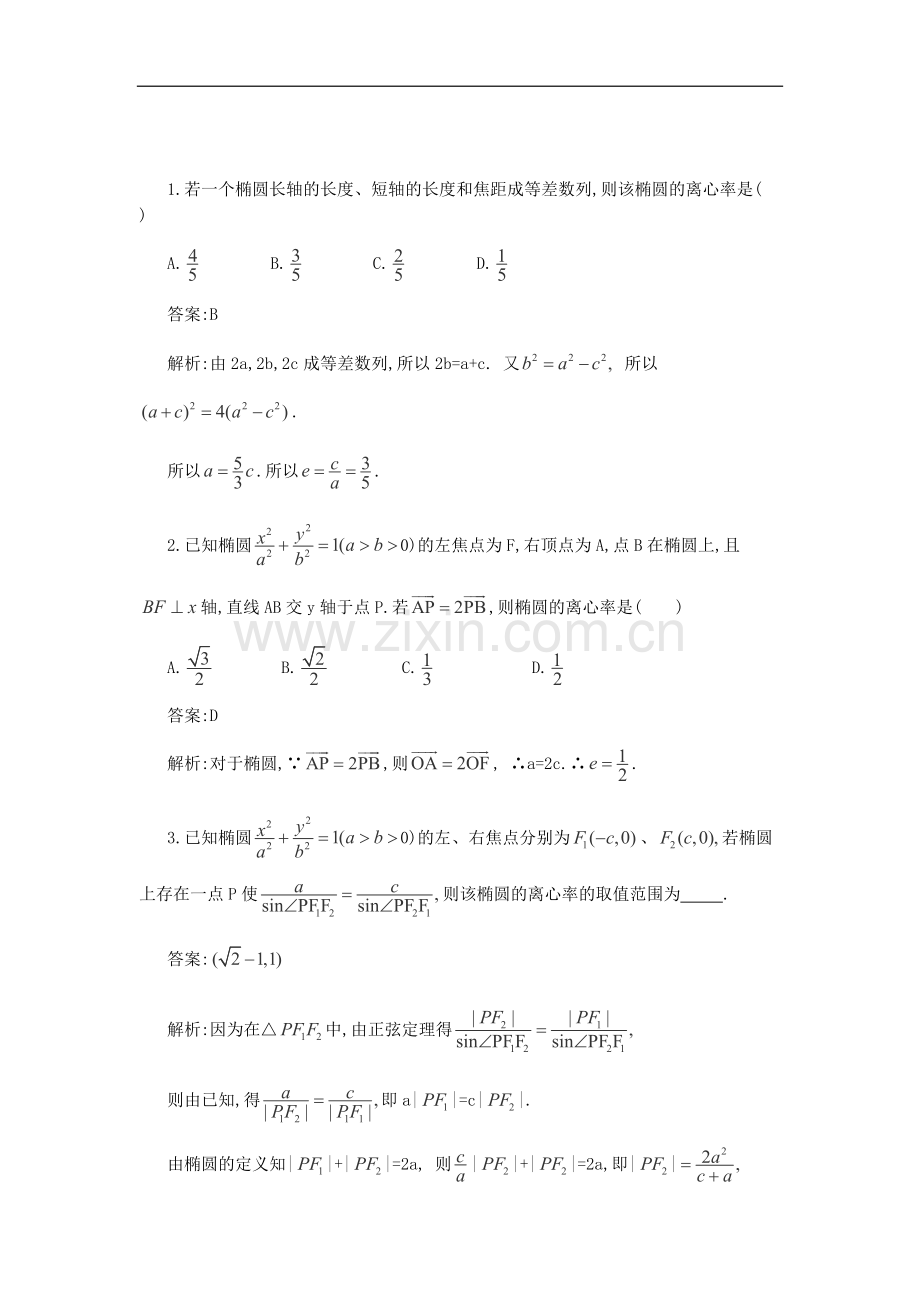 1.若一个椭圆长轴的长度、短轴的长度和焦距成等差数列,则该椭圆的离心率是(
)
A. 4/5 B. 3/5 C. 2/5 D. 1/5
答案:B
解析:由 2a,2b,2c 成等差数列,所以 2b=a+c. 又 b² = a² − c², 所以
(a + c)² = 4(a² − c²).
所以 a = 5/3 c.所以 e = c/a = 3/5.
2.已知椭圆 x²/a² + y²/b² = 1(a > b > 0)的左焦点为 F,右顶点为 A,点 B 在椭圆上,且
BF ⊥ x 轴,直线 AB 交 y 轴于点 P.若 \overrightarrow{AP} = 2\overrightarrow{PB},则椭圆的离心率是( )
www.zixin.com.cn
A. √3/2 B. √2/2 C. 1/3 D. 1/2
答案:D
解析:对于椭圆,∵ \overrightarrow{AP} = 2\overrightarrow{PB},则 \overrightarrow{OA} = 2\overrightarrow{OF}, ∴a=2c.∴ e = 1/2.
3.已知椭圆 x²/a² + y²/b² = 1(a > b > 0)的左、右焦点分别为 F₁(−c,0)、F₂(c,0),若椭圆
上存在一点 P 使 a/sin∠PF₁F₂ = c/sin∠PF₂F₁, 则该椭圆的离心率的取值范围为_____.
答案:(√2 −1,1)
解析:因为在△PF₁F₂ 中,由正弦定理得 |PF₂|/sin∠PF₁F₂ = |PF₁|/sin∠PF₂F₁,
则由已知,得 a/|P₁F₂| = c/|P₁F₁|,即 a|PF₁|=c|PF₂|.
由椭圆的定义知|PF₁|+|PF₂|=2a, 则 c/a |PF₂|+|PF₂|=2a,即|PF₂| = 2a²/(c + a),